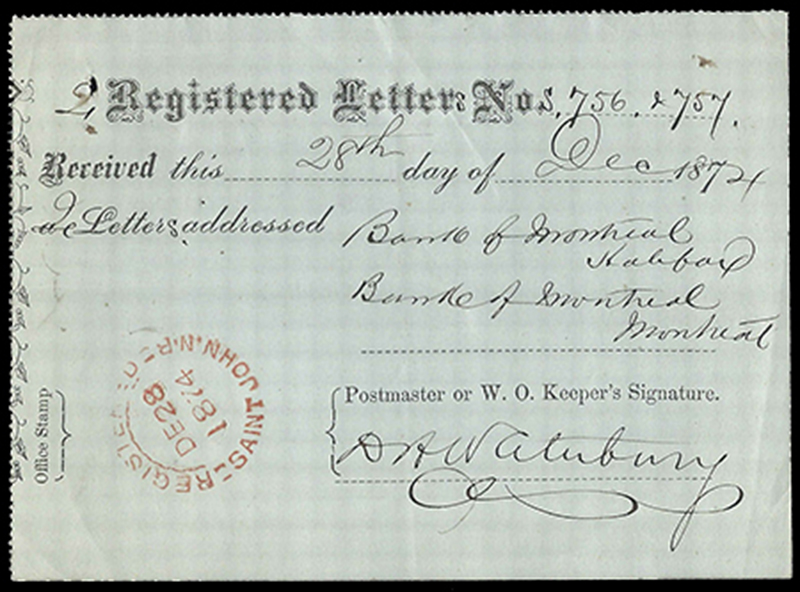 2 Registered Letters Nos. 756 & 757.
Received this 28th day of Dec 1874
2 Letters addressed Bank of Montreal
Halifax
Bank of Montreal
Montreal
Office Stamp
REGISTERED
SAINT JOHN.N.B.
DE 28
1874
Postmaster or W. O. Keeper's Signature.
D H Waterbury